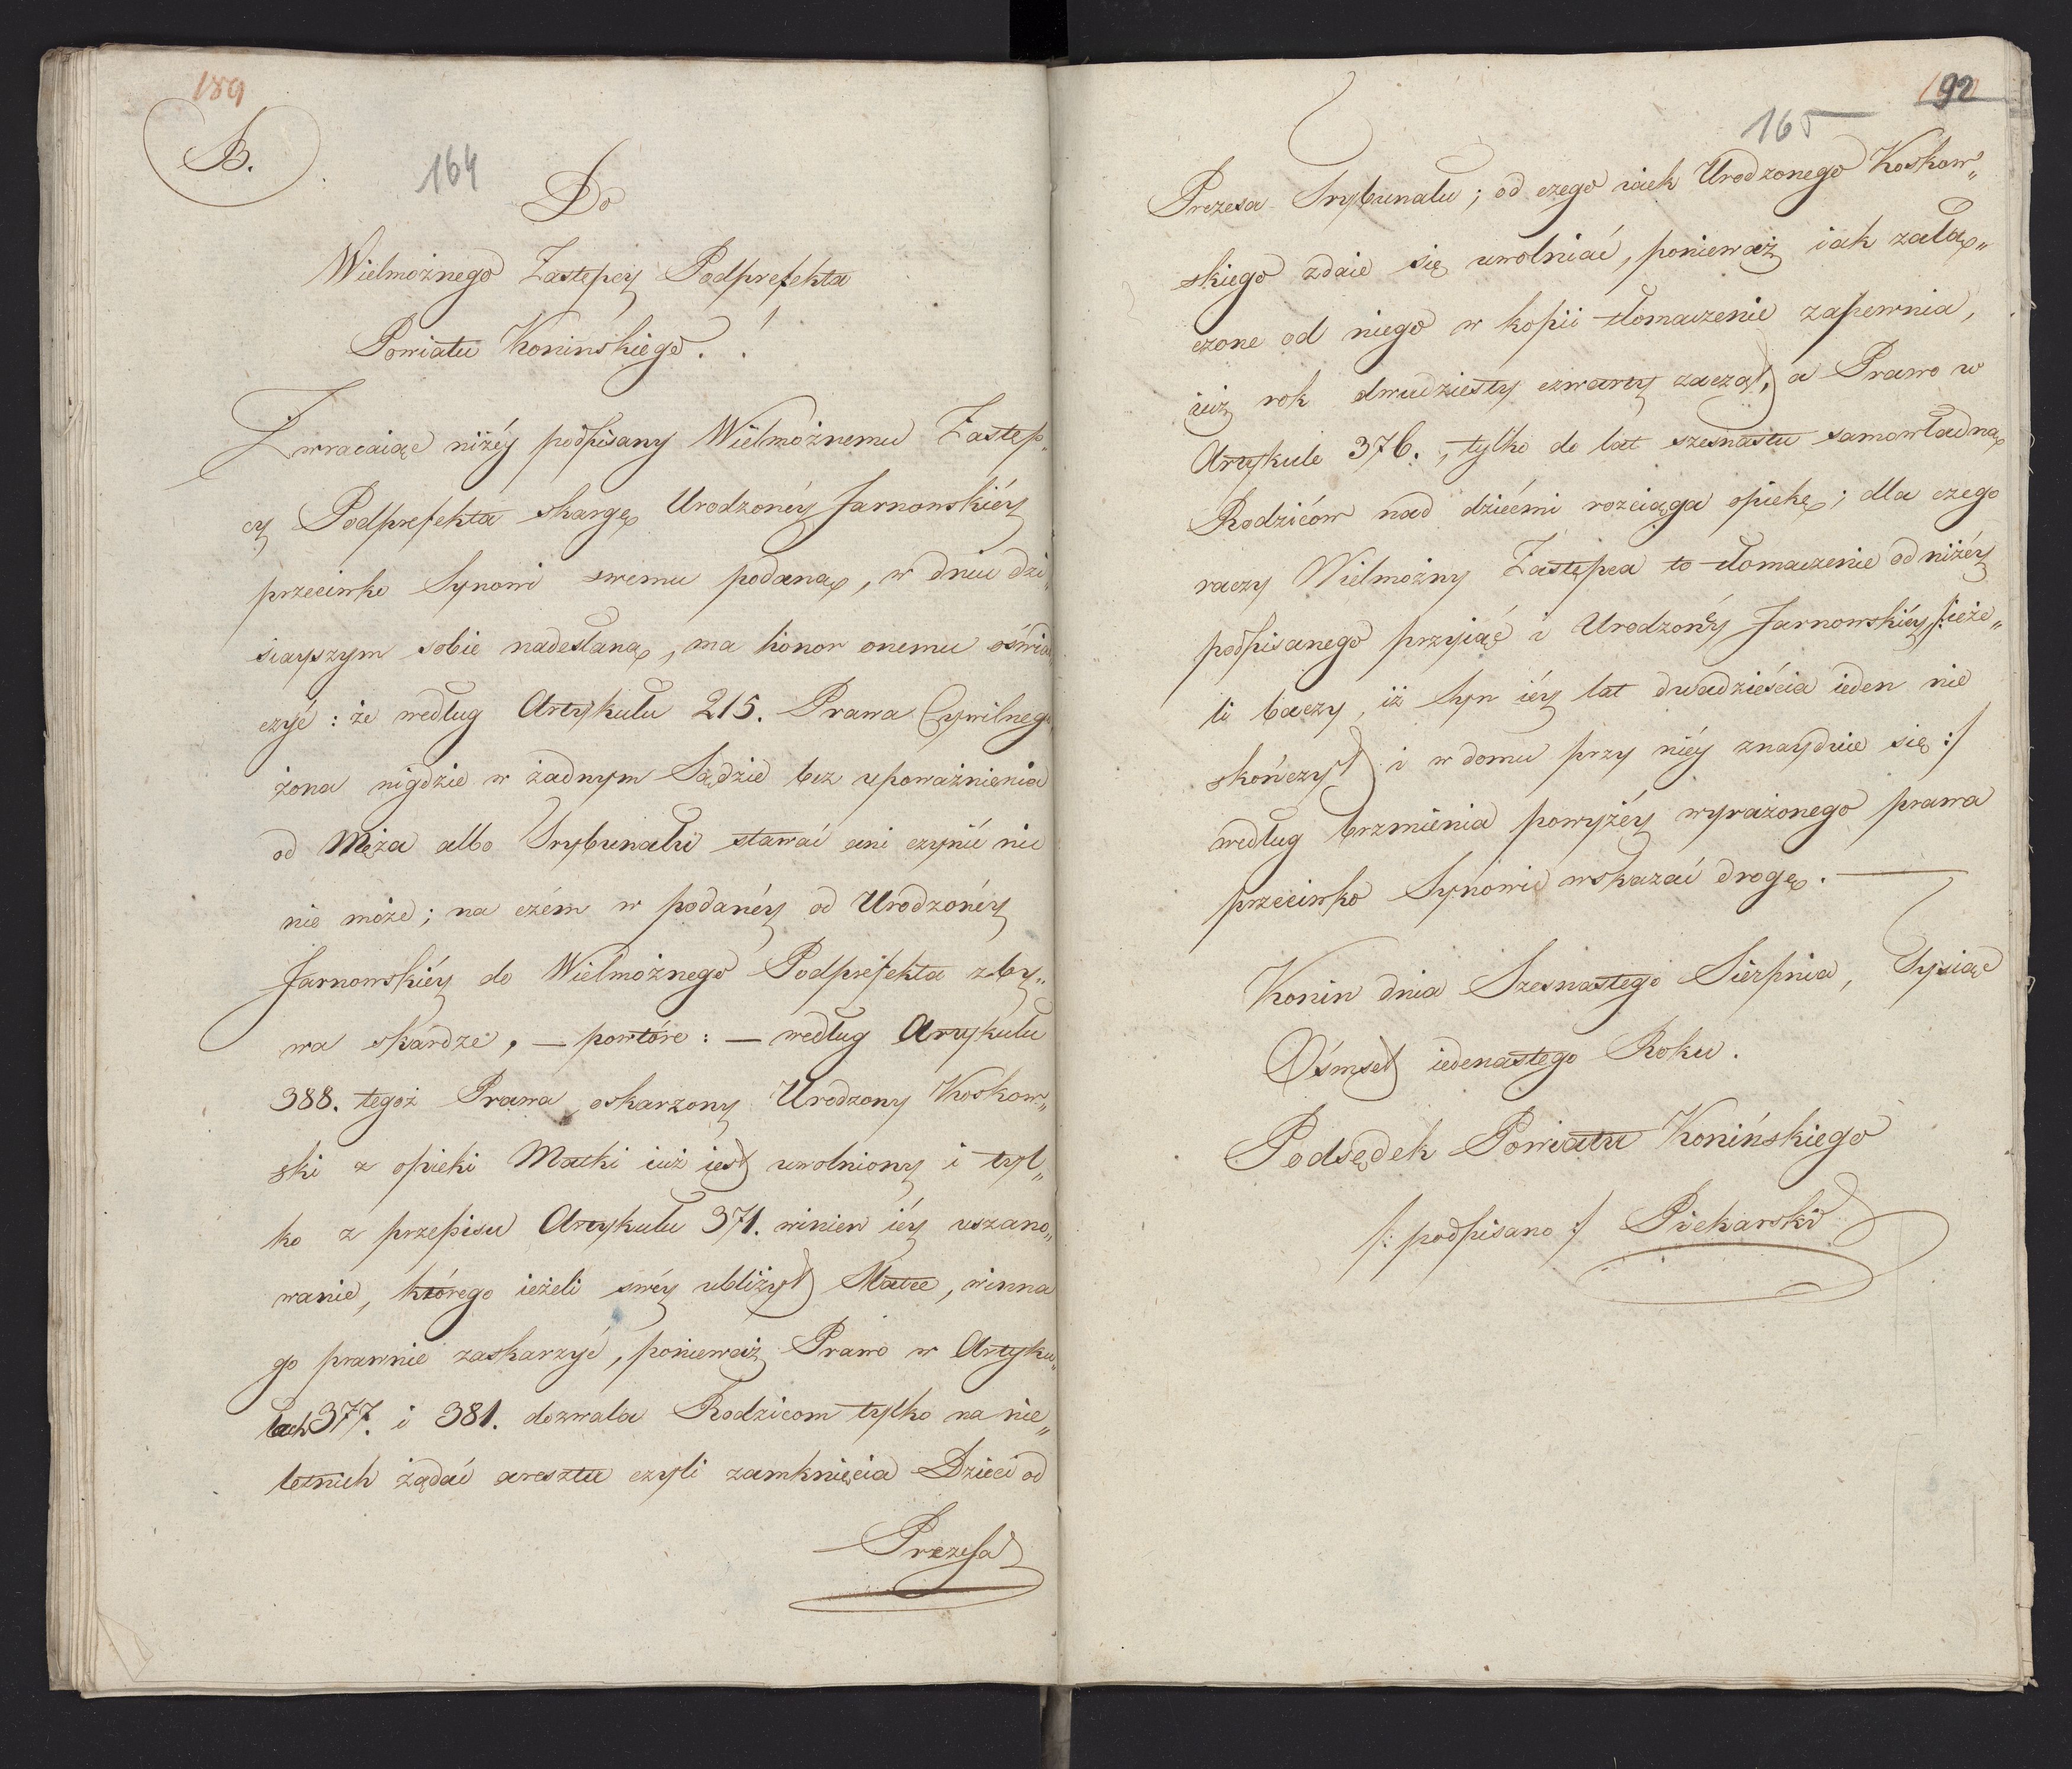 189
B.
164
Do
Wielmożnego Zastępcy Podprefekta
Powiatu Konińskiego. !
Zwracaiąc niżéy podpisany Wielmożnemu Zastęp„
cy Podprefekta skargę Urodzonéy Jarnowskiéy
przeciwko Synowi swemu podaną, w dniu dzi„
siayszym sobie nadesłaną, ma honor onemu oświad„
czyć: że według Artykułu 215. Prawa Cywilnego
żona nigdzie w żadnym Sądzie bez upoważnienia
od Męża albo Trybunału stawać ani czynić nic
nie może; na czém w podanéy od Urodzonéy
Jarnowskiéy do Wielmożnego Podprefekta zby„
wa skardze, — powtóre: — według Artykułu
388. tegoż Prawa oskarzony Urodzony Koskow„
ski z opieki Matki iuż iest uwolniony i tyl„
ko z przepisu Artykułu 371. winien iéy uszano„
wanie, którego ieżeli swéy ubliżył Matce, winna
go prawnie zaskarzyć, ponieważ Prawo w Artyku„
łach 377. i 381. dozwala Rodzicom tylko na nie„
letnich żądać aresztu czyli zamknięcia Dzieci od
Prezesa
92
165
Prezesa Trybunału; od czego wiek Urodzonego Koskow„
skiego zdaie się uwolniać, ponieważ iak załą„
czone od niego w kopii tłomaczenie zapewnia,
iuż rok dwudziesty czwarty zaczął, a Prawo w
Artykule 376., tylko do lat szesnastu samowładną
Rodziców nad dziećmi rozciąga opiekę; dla czego
raczy Wielmożny Zastępca to tłomaczenie od niżéy
podpisanego przyiąć i Urodzonéy Jarnowskiéy /:ieże„
li baczy, iż Syn iéy lat dwadzieścia ieden nie
skończył i w domu przy niéy znayduie się:/
według brzmienia powyżéy wyrażonego prawa
przeciwko Synowi wskazać drogę. —
Konin dnia Szesnastego Sierpnia, Tysiąc
Ośmset iedenastego Roku.
Podsędek Powiatu Konińskiego
/: podpisano :/ Piekarski